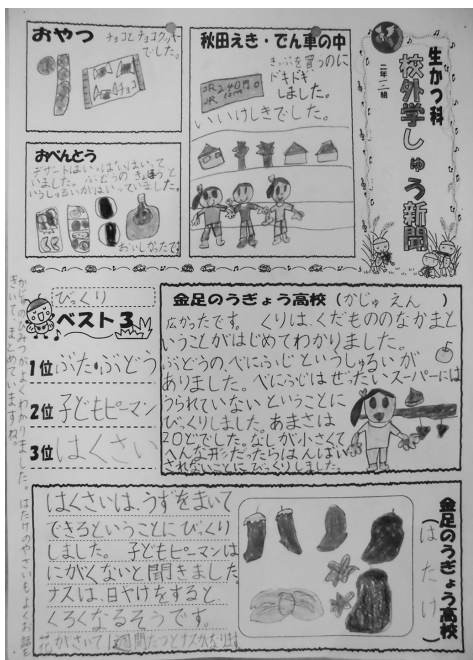 生かつ科
校外学しゅう新聞
二年一組
秋田えき・でん車の中
きっぷを買うのに
ドキドキ
しました。
JR 240円
いいけしきでした。
おやつ
チョコとチョコクッキー
でした。
チョコ
おべんとう
デザートはいっぱいはいって
いました。ぶどうのきょほうと
いうしゅるいがはいっていました。
おいしかったです
びっくり
ベスト3
1位 ぶた・ぶどう
2位 子どもピーマン
3位 はくさい
金足のうぎょう高校(かじゅえん)
広かったです。くりは、くだもののなかまと
いうことがはじめてわかりました。
ぶどうのべにふじというしゅるいが
ありました。べにふじはぜったいスーパーには
うられていないということに
びっくりしました。あまさは
20どでした。なしが小さくて
へんな形だったらはんばい
されないことにびっくりしました。
金足のうぎょう高校
(はたけ)
はくさいは、うずをまいて
できるということにびっくり
しました。子どもピーマンは
にがくないと聞きました
ナスは、日やけをすると
くろくなるそうです。
花がさいて1週間たつとナスがなります